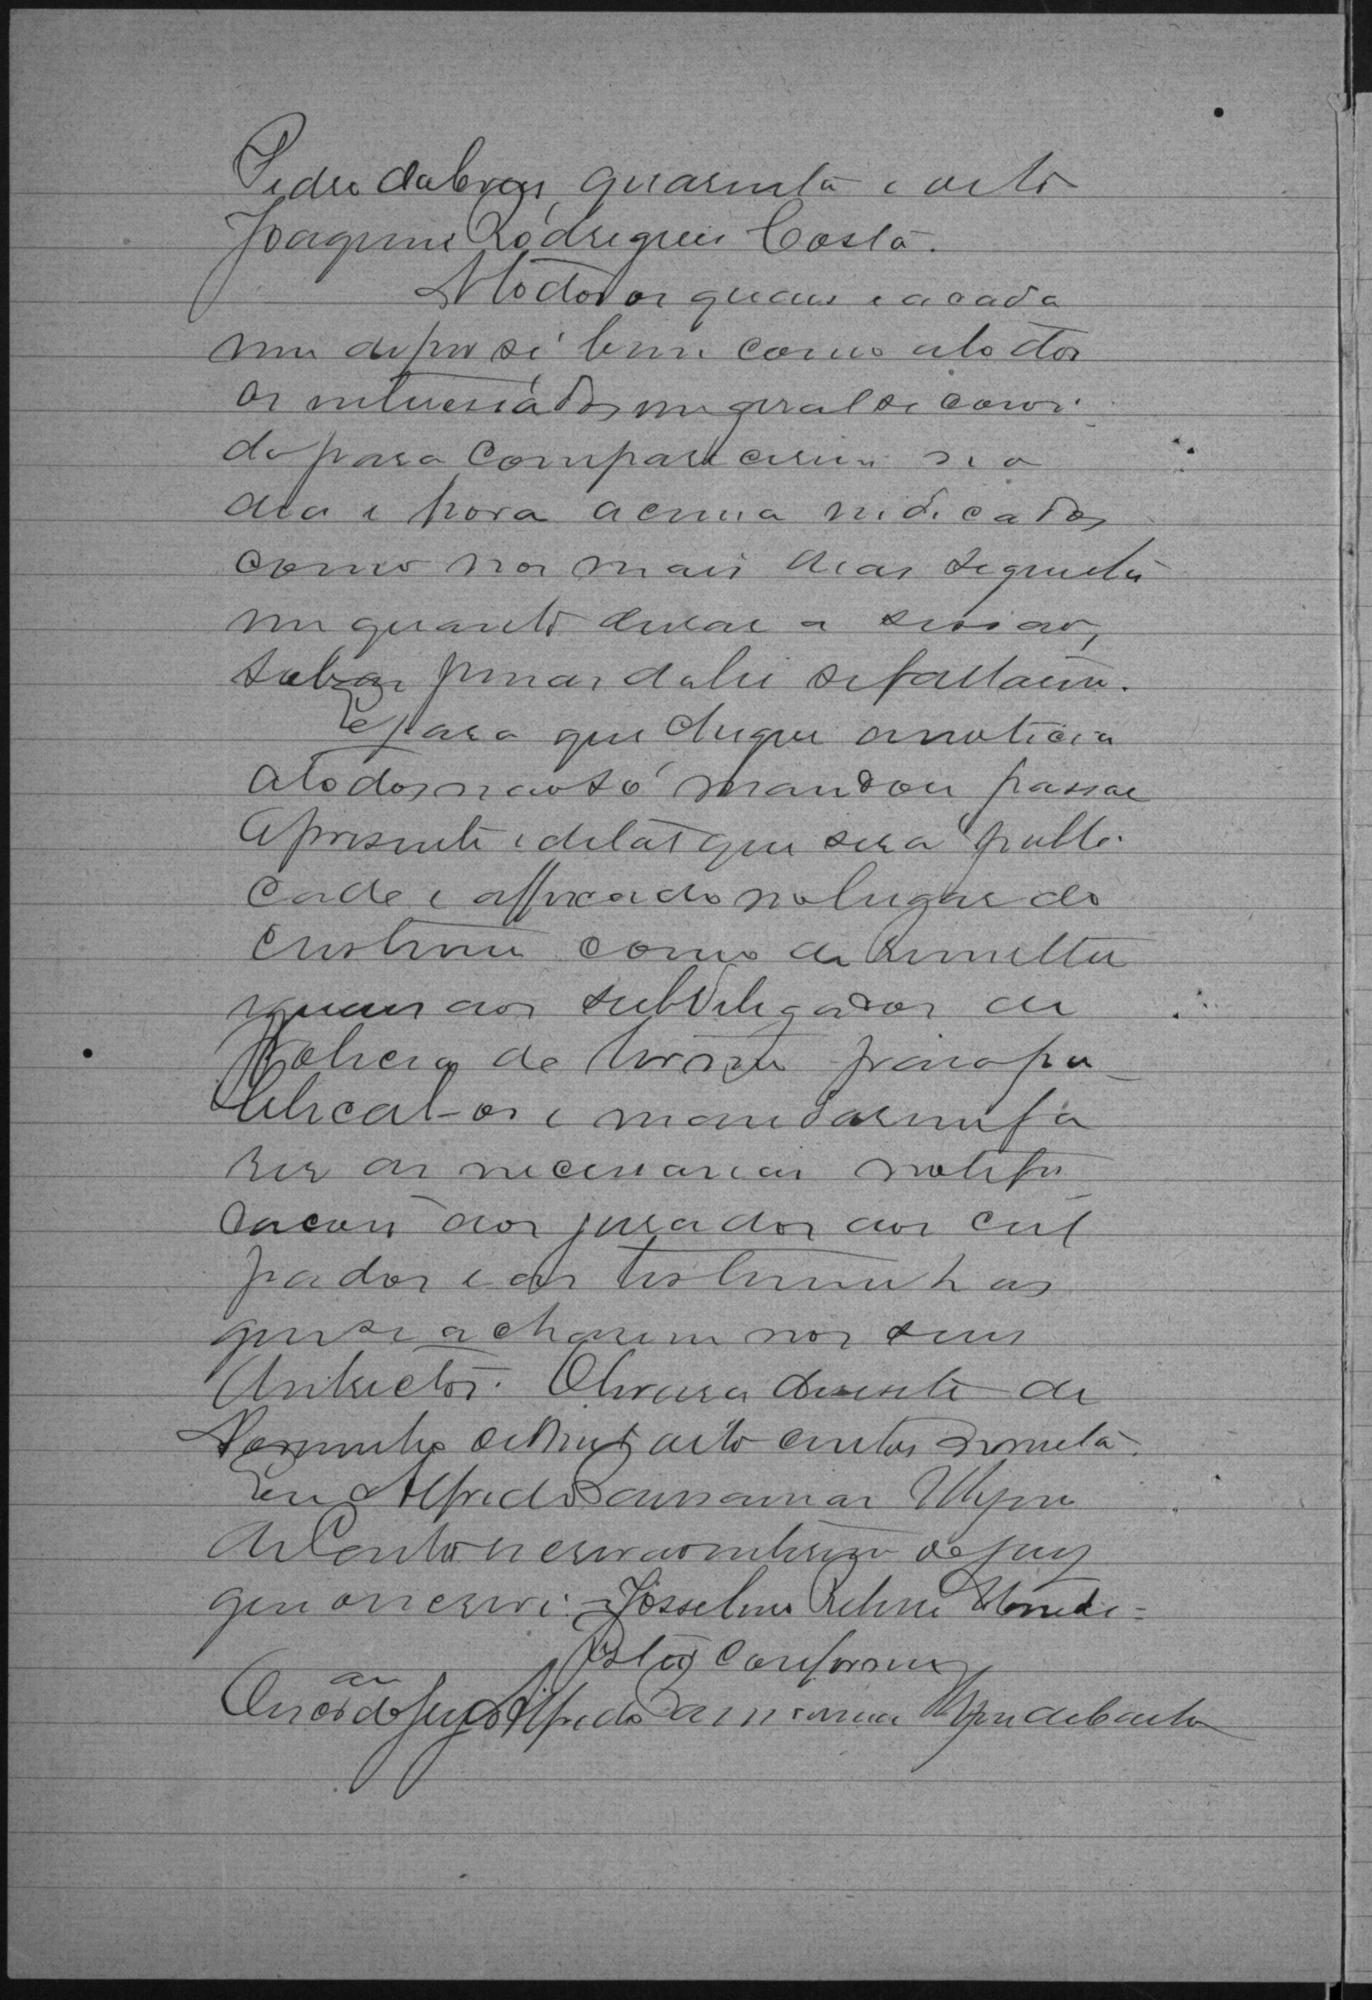 Pedro da Cruz, quarenta e oito
Joaquim Rodrigues Costa.
Atodos os quaes e acada
um de por si bem como atodos
os interessados em geral se convi
da para comparecerem no
dia e hora acima indicados
como nos mais dias seguintes
em quanto durar a sessao,
sub as penas da lei se faltarem.
E para que chegue a noticia
atodos não só mandou passar
a presente edital que será publi
cado e affixado no lugar do
custume como de remetter
iguaes aos subdelegados de
Policia de termo para pu
blical-os e mandarem fa
zer as necessarias notifi
cacoes aos jurados aos cul
pados e as testemunhas
que se acharem nos seus
districtos. Oliveira de
de mil oito centos noventa.
Eu Alfredo
de Castro escrivão interino do jury
que o escrevi. Josselino
Está conforme
O escrivão do jury Alfredo de Castro